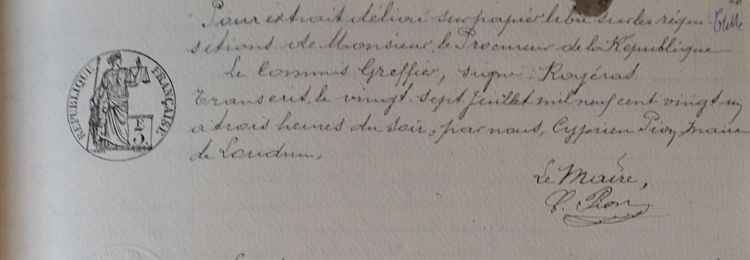 Pour extrait délivré sur papier libre sur les réqui-
sitions de Monsieur le Procureur de la République
Le Commis Greffier, signé: Rozéras.
Transcrit le vingt-sept Juillet mil neuf cent vingt-un
à trois heures du soir, par nous, Cyprien Pion, Maire
de Laudun.
Le Maire,
C. Pion
RÉPUBLIQUE FRANÇAISE